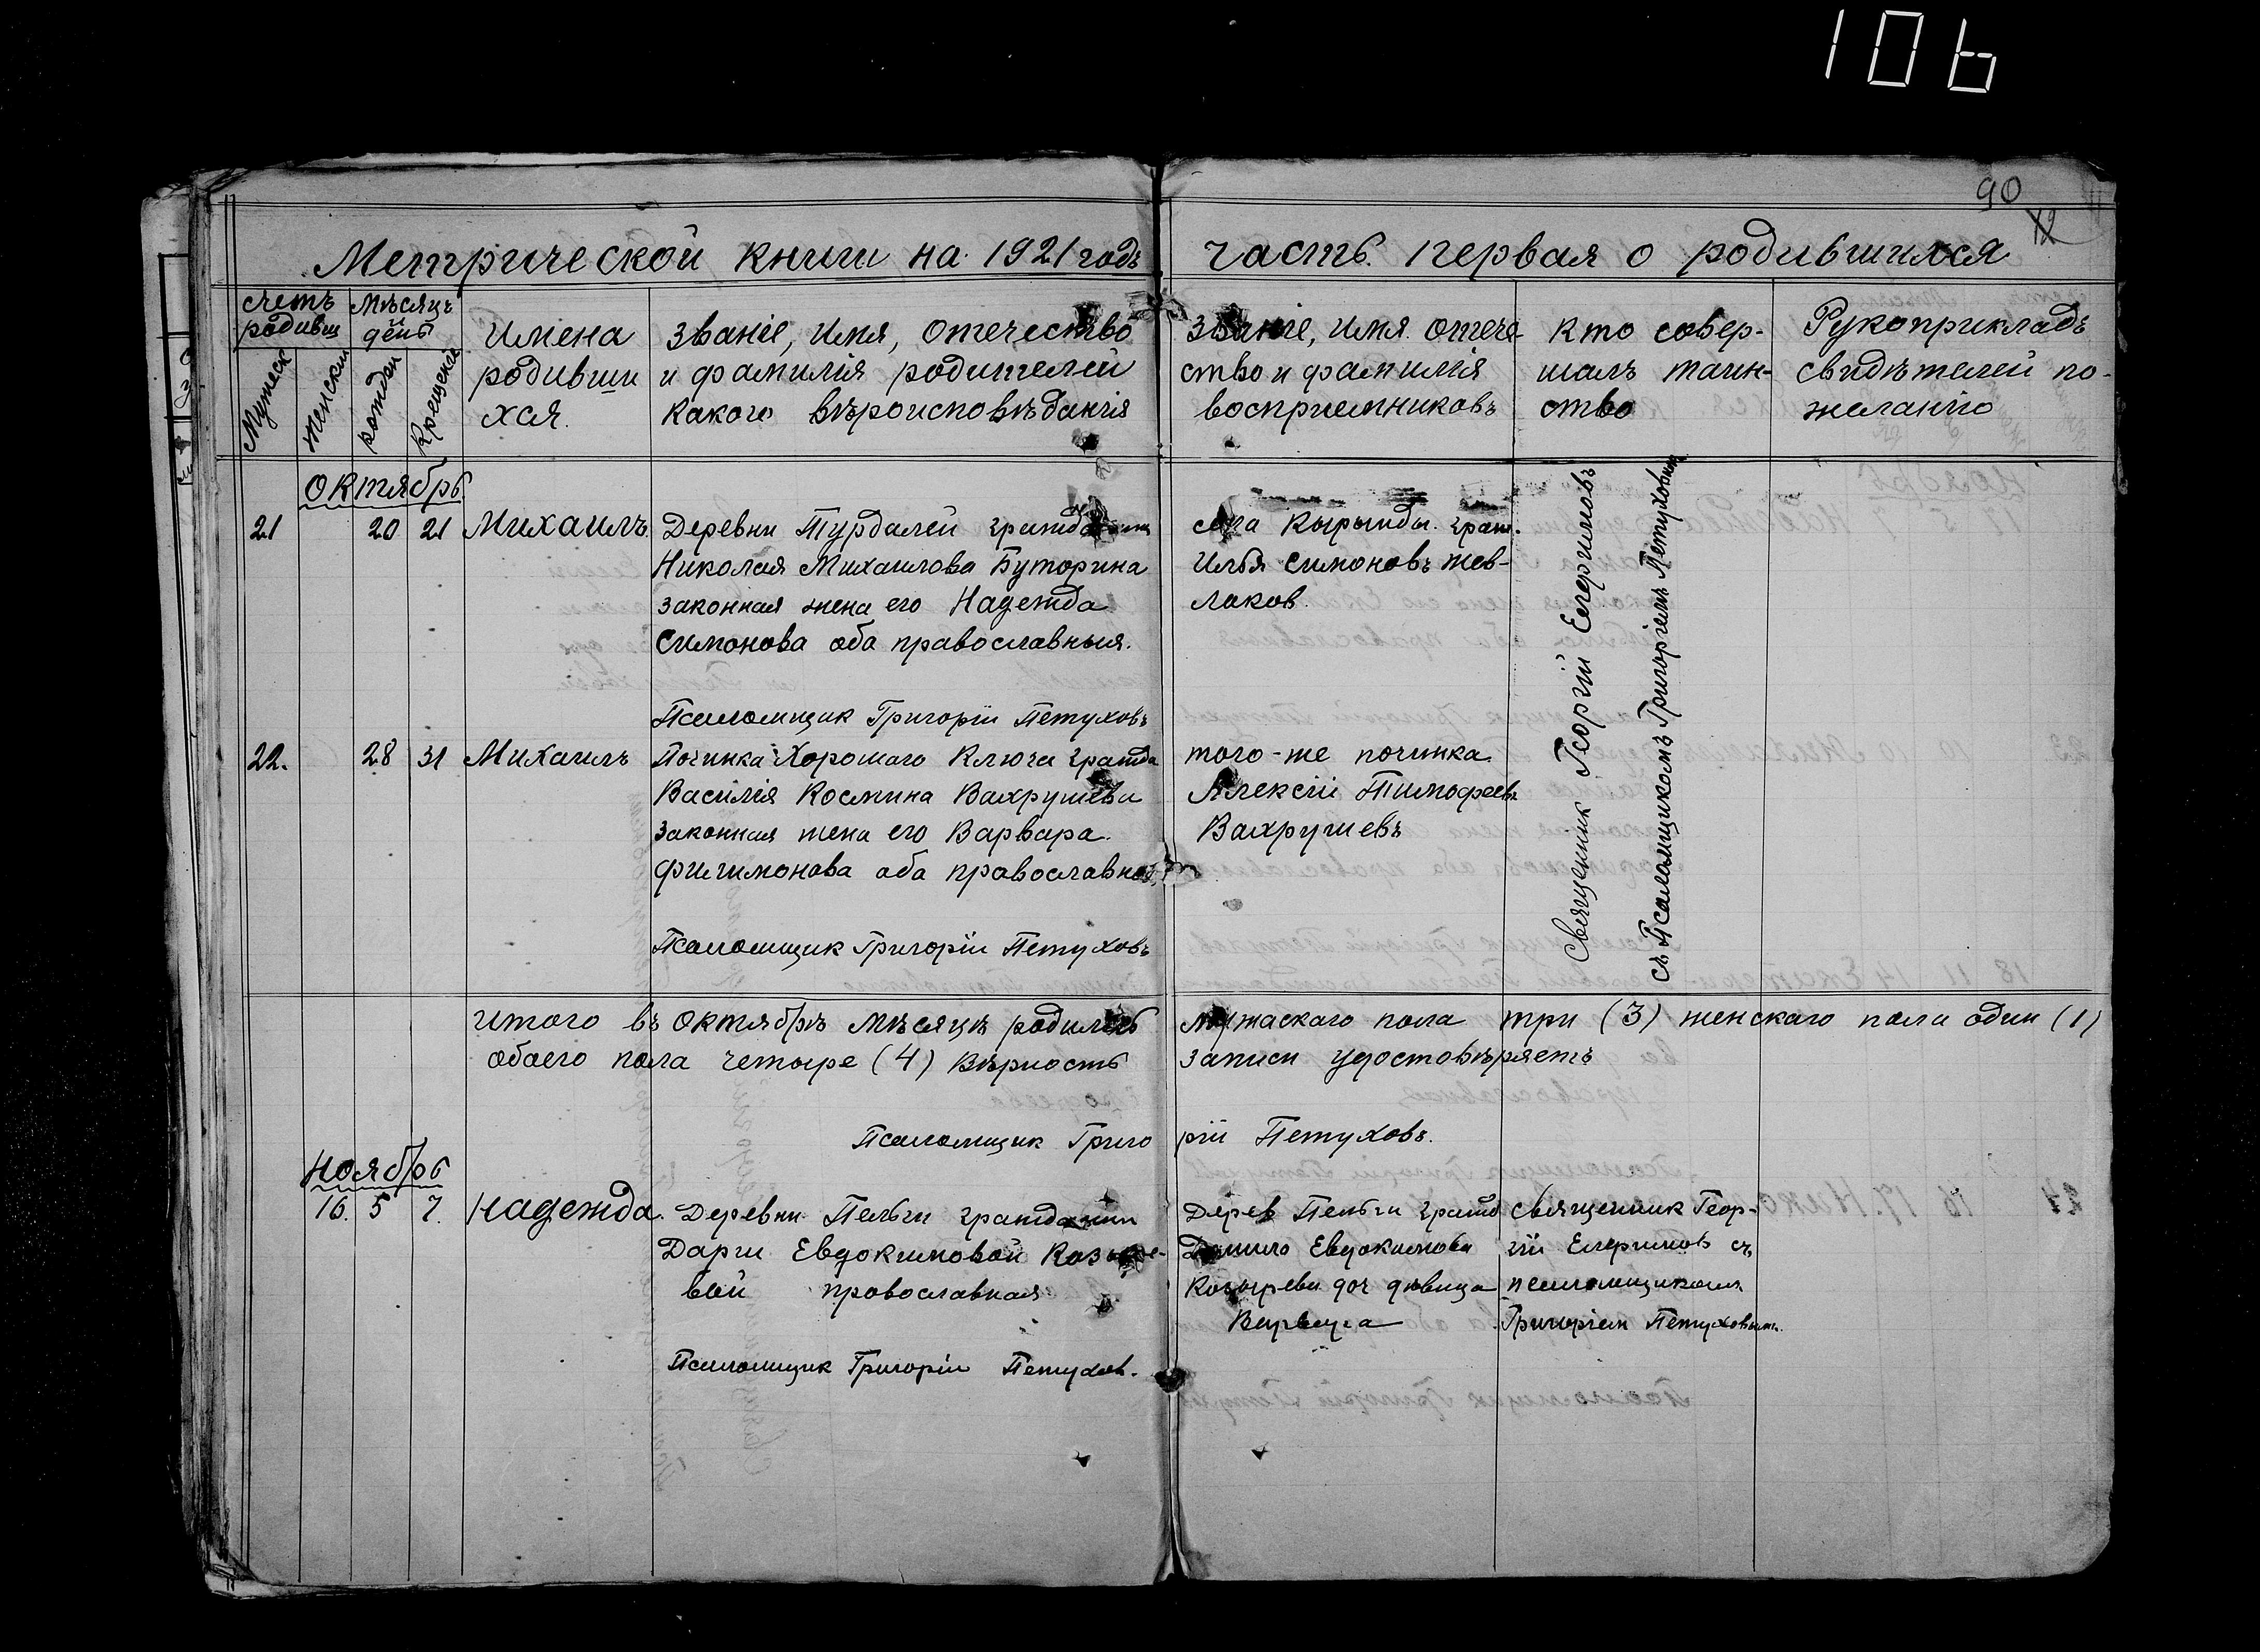 106
90
12
Метрической книги на 1921 годъ часть первая о родившихся
счетъ родивш
Мѣсяцъ и день
Мужеск
женски
рожден
Крещения
Имена
родивши
хся.
Званіе, Имя, Отечество
и фамилія родителей
какого вѣроисповѣданія
Званіе, Имя. Отече-
ство и фамилія
восприемниковъ
Кто совер-
шалъ таин-
ство
Рукоприкладъ
свидѣтелей по-
желанію
октябрь
21 20 21 Михаилъ.
Деревни Турдалей
Николая Михаилова Буторина
законная жена его Надежда
Симонова оба православныя.
Псаломщик Григорій Петуховъ
села Кырынды. граж.
Илья Симоновъ Жев-
лаков.
Священник Георгій
съ Псаломщикомъ Григоріемъ Петуховым
22. 28 31 Михаилъ
Починка Хорошаго Ключа гражда
Василія Космина Вахрушева
законная жена его Варвара.
Филимонова оба православной
Псаломщик Григорій Петуховъ
того-же починка
Алексій Тимофеевъ
Вахрушевъ
Итого въ октябрѣ мѣсяцѣ родилось мужаскаго пола три (3) женскаго пола один (1)
обоего пола четыре (4) Вѣрность записи удостовѣряетъ
Псаломщик Григорій Петуховъ.
Ноябрь
16. 5 7. Надежда.
Деревни Пельги гражданки
Дарьи Евдокимовой Козыре-
вой православная
Псаломщик Григорій Петухов.
Дерев Пельги гражд
Данило Евдокимова
Козырева доч дѣвица
Варвара
священник Геор-
гій съ
псаломщиком
Григоріем Петуховым.